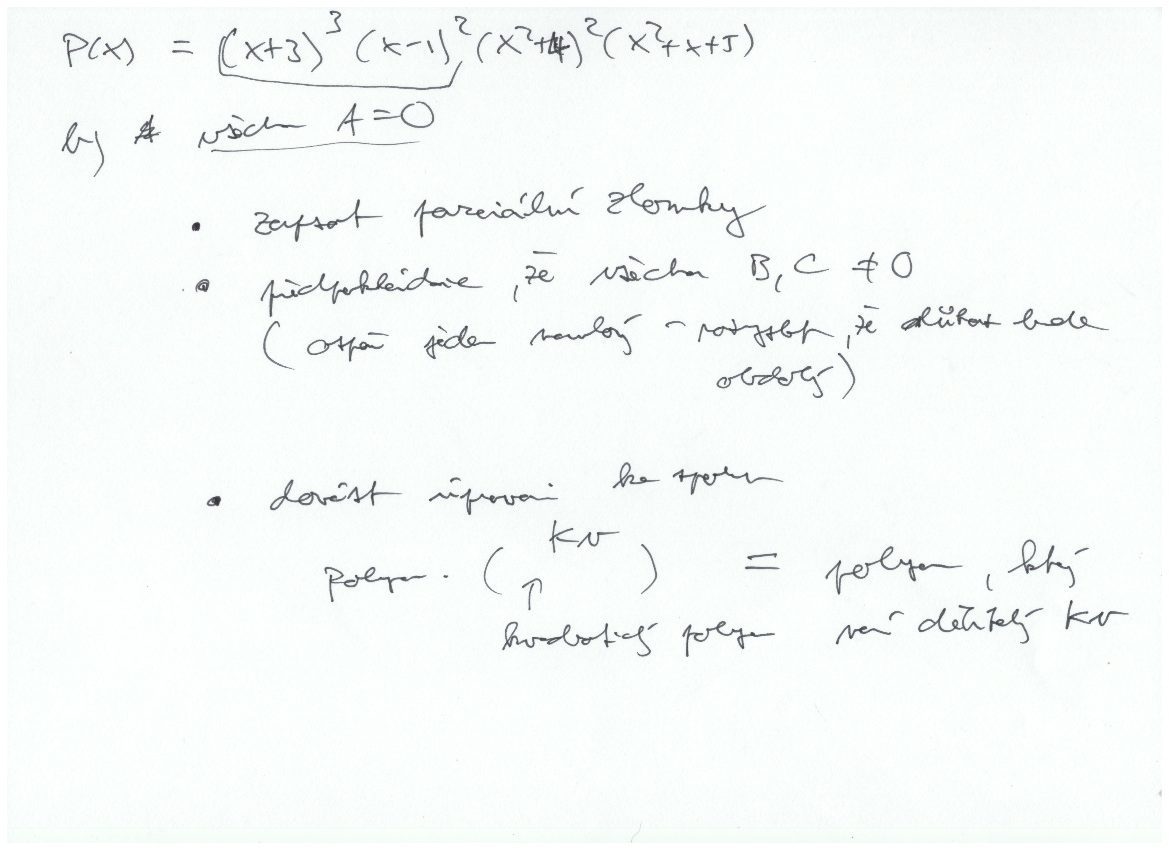 P(x) = (x+3)³ (x-1)² (x²+4)² (x²+x+5)
b) všechna A=0
• zapsat parciální zlomky
• předpokládáme, že všechna B, C ≠ 0
( jeden nenulový - , že důkaz bude
obdobný)
• dovést úpravami ke sporu
Kv
Polyn. ( ↑ ) = polynom, který
kvadratický polynom není dělitelný Kv